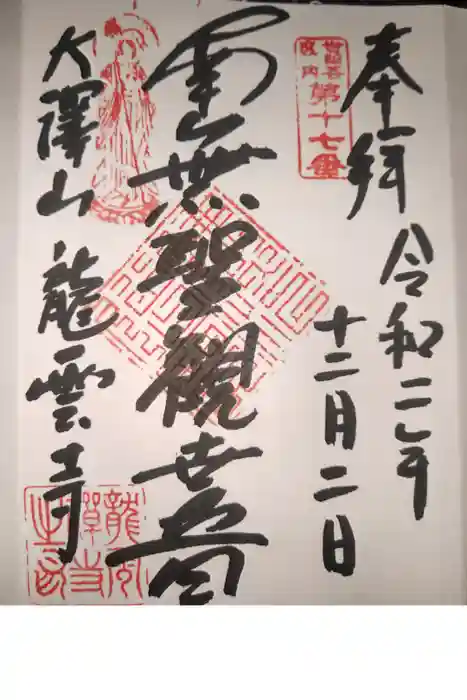 奉拝
令和二年
十二月二日
世田谷
区内
第十七番
南無聖観世音
大澤山 龍雲寺